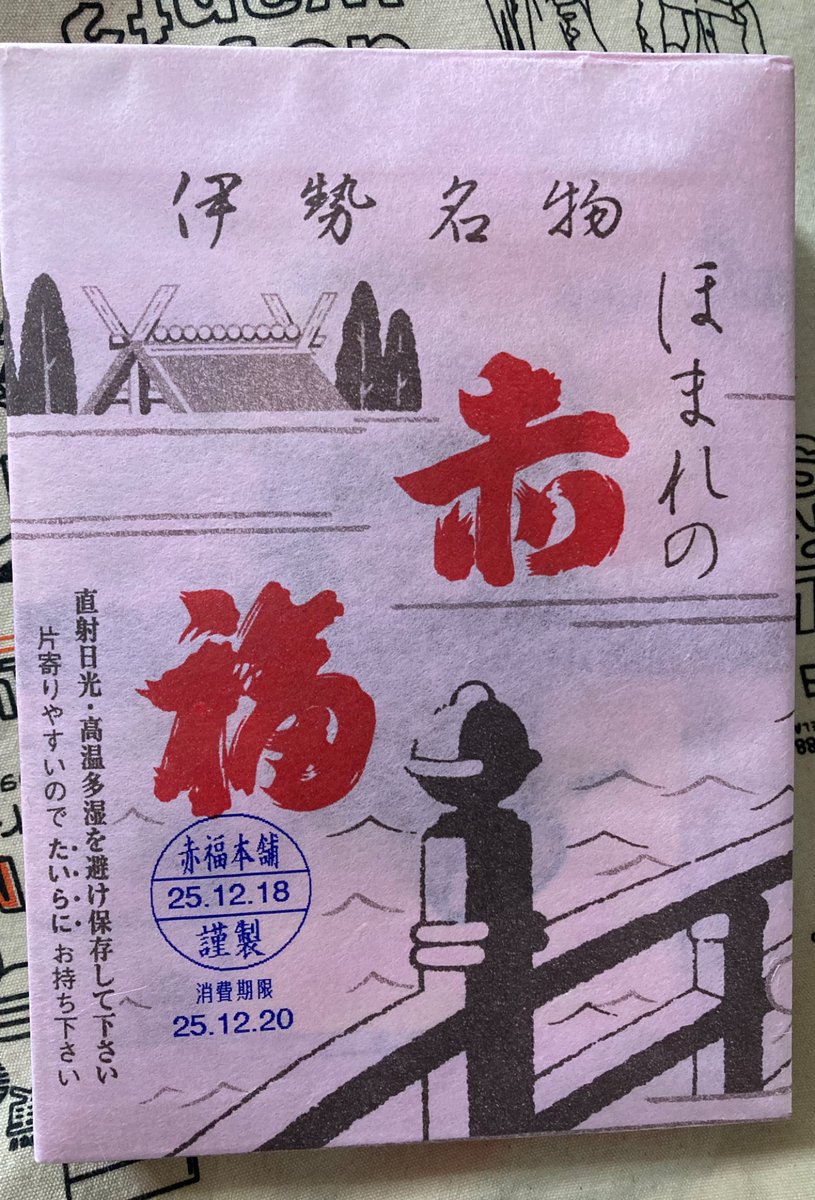 伊勢名物
ほまれの
赤福
直射日光・高温多湿を避け保存して下さい
片寄りやすいので たいらに お持ち下さい
赤福本舗
25.12.18
謹製
消費期限
25.12.20